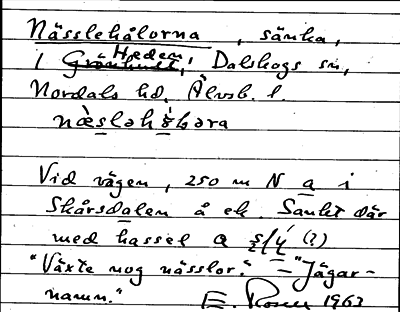 Nässlehålorna, sänka,
i Heden, Dalskogs sn,
Nordals hd, Älvsb. l.
Vid vägen, 250 m N a i
Skårsdalen å ek. Sankt där
med hassel
"Växte nog nässlor." – "Jägar-
namn." E. 1963